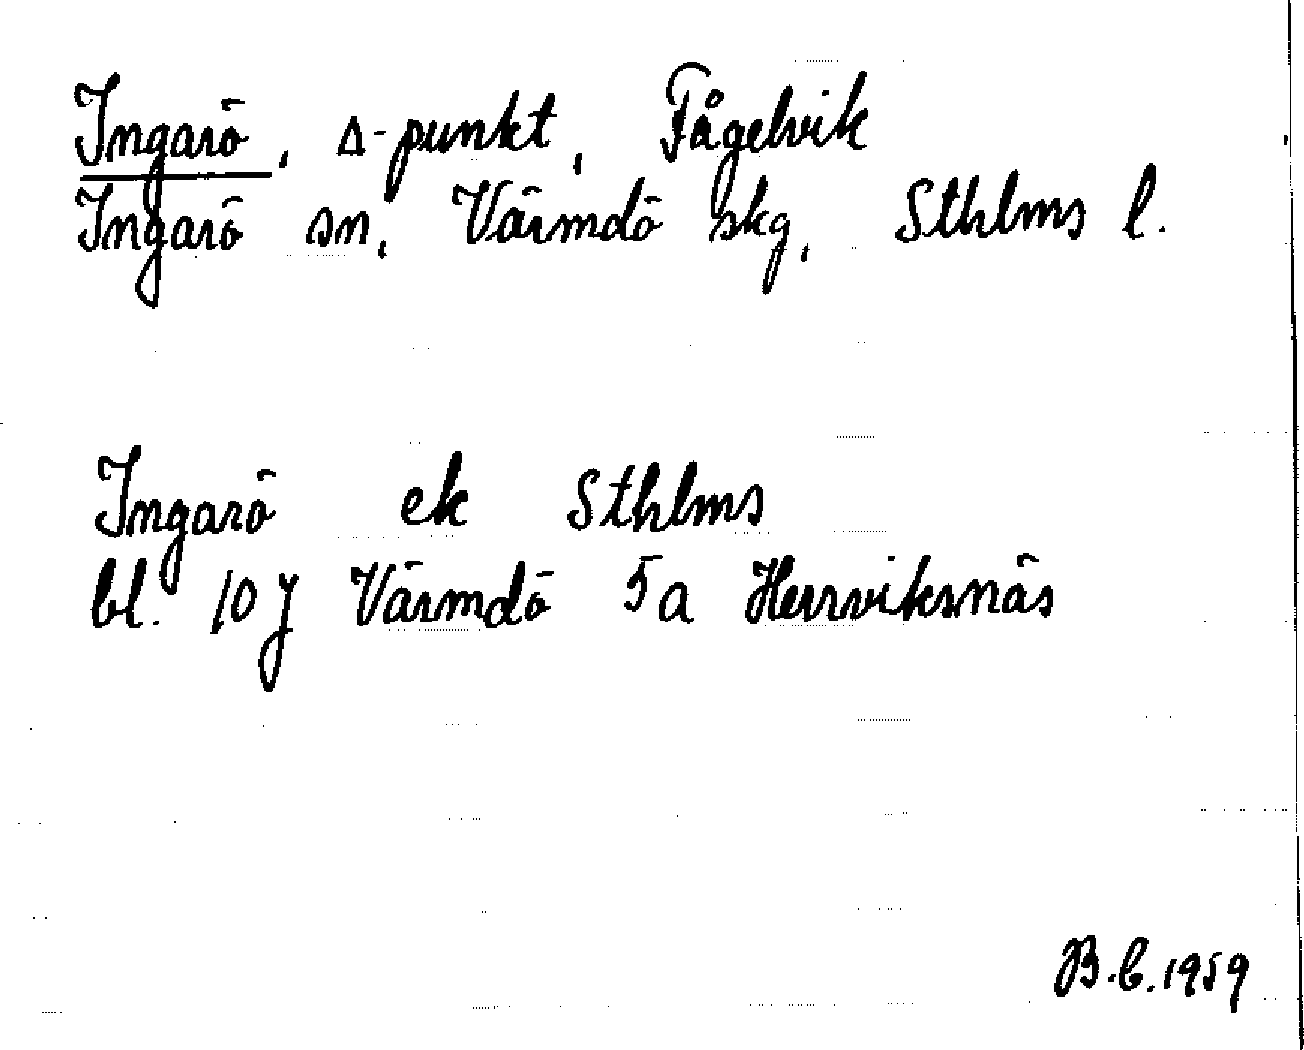 Ingarö, Δ-punkt, Fågelvik
Ingarö sn, Värmdö skg, Sthlms l.
Ingarö ek Sthlms
bl. 10 J Värmdö 5a Herrviksnäs
B.C. 1959